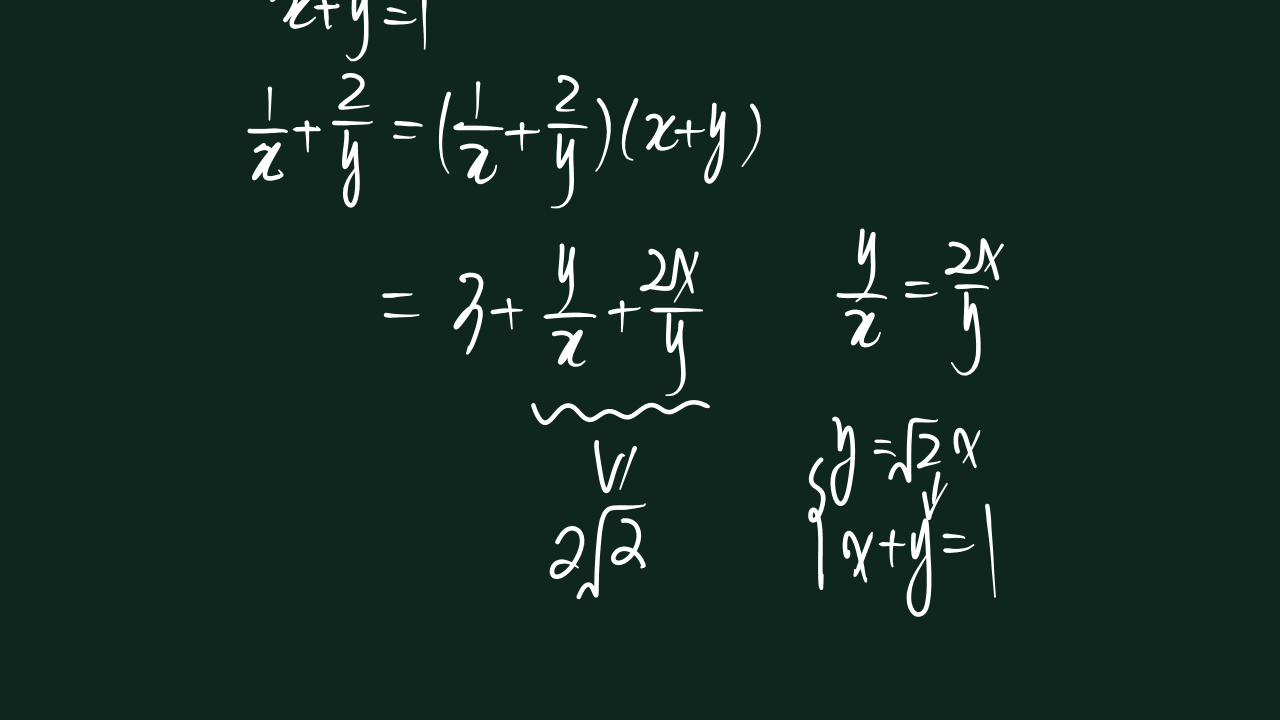 x+y=1
1/x + 2/y = (1/x + 2/y)(x+y)
= 3 + y/x + 2x/y
≥
2√2
y/x = 2x/y
{ y=√2 x
x+y=1